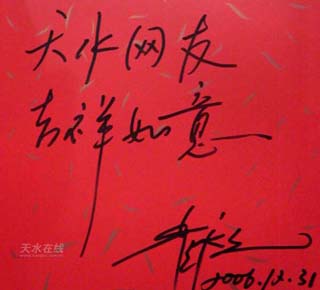 天水网友
吉祥如意
2006.12.31
天水在线